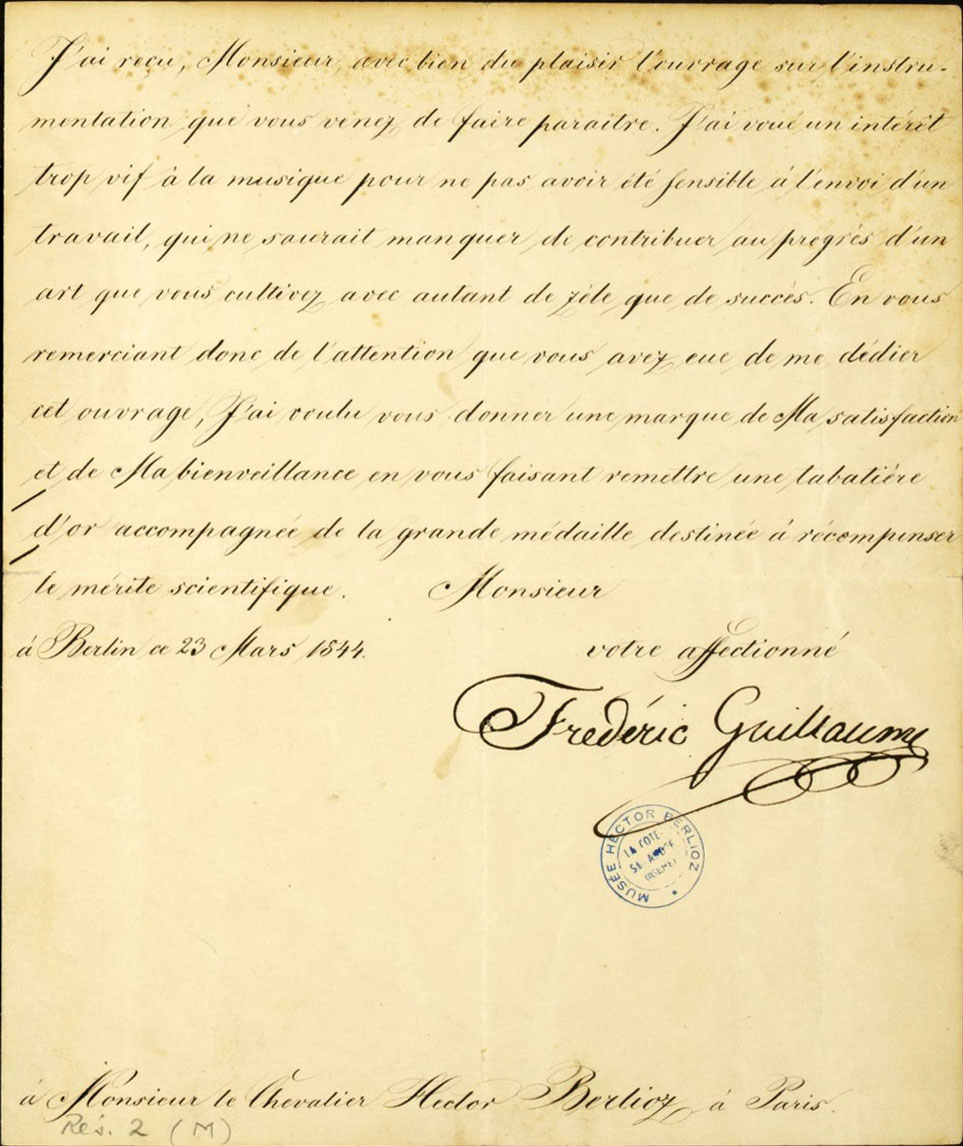 J'ai reçu, Monsieur, avec bien du plaisir l'ouvrage sur l'instru-
mentation que vous venez de faire paraitre. J'ai voué un intérêt
trop vif à la musique pour ne pas avoir été sensible à l'envoi d'un
travail, qui ne saurait manquer de contribuer au progrès d'un
art que vous cultivez avec autant de zèle que de succès. En vous
remerciant donc de l'attention que vous avez eue de me dédier
cet ouvrage, J'ai voulu vous donner une marque de Ma satisfaction
et de Ma bienveillance en vous faisant remettre une tabatière
d'or accompagnée de la grande médaille destinée à récompenser
le mérite scientifique. Monsieur
à Berlin ce 23 Mars 1844. votre affectionné
Frédéric Guillaume
MUSÉE HECTOR BERLIOZ
LA COTE-
St ANDRÉ
(ISÈRE)
à Monsieur le Chevalier Hector Berlioz à Paris.
Rés. 2 (M)